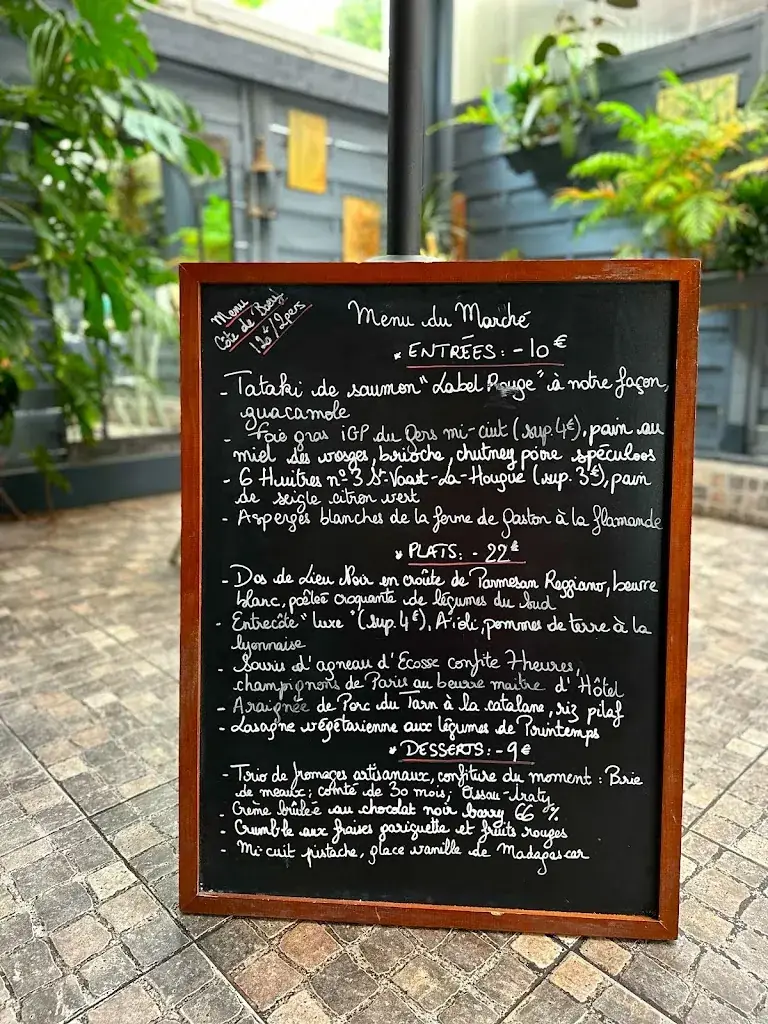 Menu
Côte de Bœuf
120€/2pers
Menu du Marché
* ENTRÉES: - 10€
- Tataki de saumon "Label Rouge" à notre façon,
guacamole
- Foie gras iGP du Gers mi-cuit (sup. 4€), pain au
miel des vosges, brioche, chutney poire spéculoos
- 6 Huitres n°3 St-Vaast-La-Hougue (sup. 3€), pain
de seigle citron vert
- Asperges blanches de la ferme de Gaston à la flamande
* PLATS: - 22€
- Dos de Lieu Noir en croûte de Parmesan Reggiano, beurre
blanc, poêlée croquante de légumes du Sud
- Entrecôte "luxe" (sup. 4€), Aïoli, pommes de terre à la
lyonnaise
- Souris d'agneau d'Ecosse confite 7 heures,
champignons de Paris au beurre maître d'Hôtel
- Araignée de Porc du Tarn à la catalane, riz pilaf
- Lasagne végétarienne aux légumes de Printemps
* DESSERTS: - 9€
- Trio de fromages artisanaux, confiture du moment : Brie
de meaux; comté de 30 mois; Ossau-Iraty
- Crème brûlée au chocolat noir barry 66 %
- Crumble aux fraises gariguette et fruits rouges
- Mi-cuit pistache, glace vanille de Madagascar